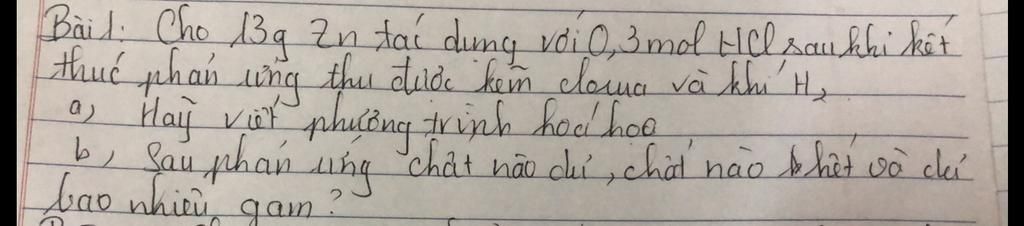 Bài 1: Cho 13g Zn tác dụng với 0,3 mol HCl sau khi kết
thúc phản ứng thu được kẽm clorua và khí H₂
a, Hãy viết phương trình hoá học
b, Sau phản ứng chất nào dư, chất nào hết và dư
bao nhiêu gam?